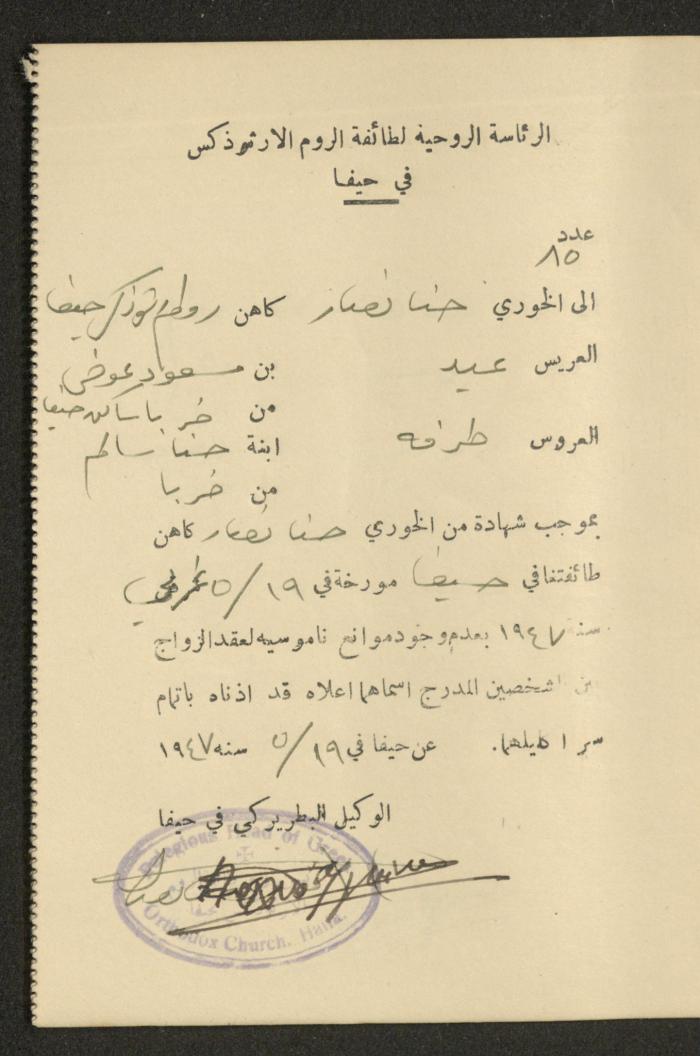 الرئاسة الروحية لطائفة الروم الارثوذكس
في حيفا
عدد
٨٥
الى الخوري حنا نصار كاهن روم ارثوذكس حيفا
العريس عيد بن مسعود عوض
من خربا ساكن حيفا
العروس طرفه ابنة حنا سالم
من خربا
بموجب شهادة من الخوري حنا نصار كاهن
طائفتنا في حيفا مورخة في ١٩/٥
سنة ١٩٤٧ بعدم وجود موانع ناموسيه لعقد الزواج
بين الشخصين المدرج اسماهما اعلاه قد اذناه باتمام
سر ا كليلهما. عن حيفا في ١٩/٥ سنه ١٩٤٧
الوكيل البطريركي في حيفا
Religious Head of Greek
Orthodox Church, Haifa.